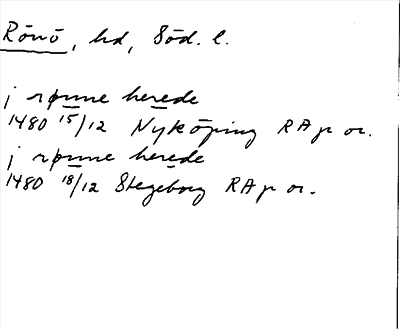 Rönö, hd, Söd. l.
j rønne herede
1480 15/12 Nyköping RA p or.
j rønne herede
1480 18/12 Stegeborg RA p or.